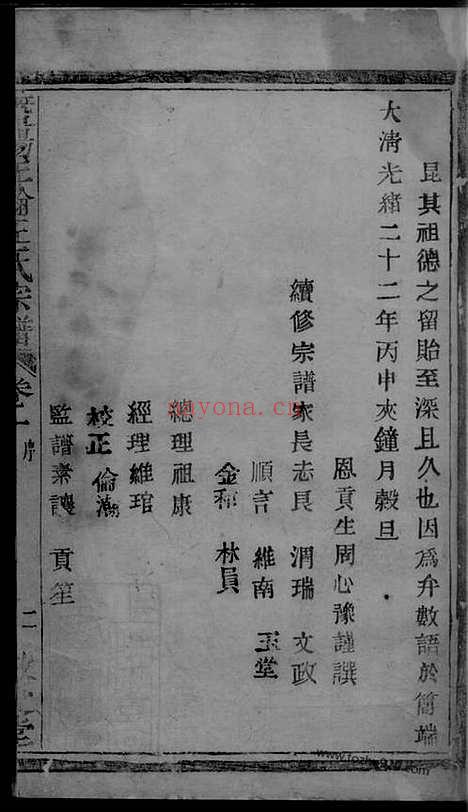 昆其祖德之留貽至深且久也因爲弁數語於簡端
大淸光緖二十二年丙申夾鐘月榖旦
恩貢生周心豫謹譔
續修宗譜家長志良 渭瑞 文政
順言 維南 玉堂
金和 林員
總理祖康
經理維琯
校正 倫瀚
監譜業謨 貢笙
王氏宗譜 卷一 序 二
nayona.cn